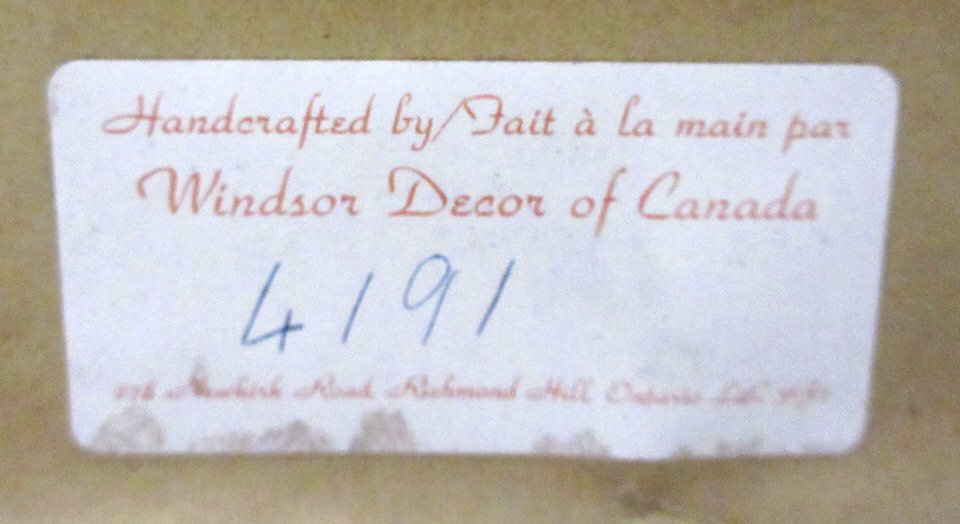 Handcrafted by/Fait à la main par
Windsor Decor of Canada
4191
Newkirk Road Richmond Hill Ontario